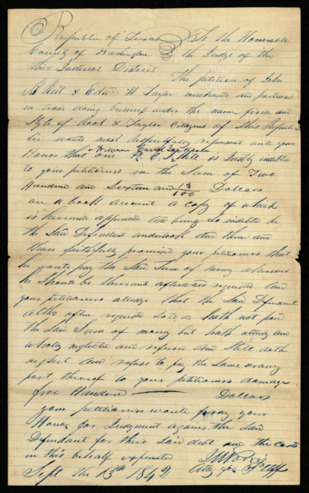 Republic of Texas To the Honorable
County of Washington the Judge of the
Third Judicial District
The petition of John
& Edwin W Taylor merchants and partners
in trade doing business under the name firm and
Style of Root & Taylor Citizens of this Republic
would most respectfully represent unto your
Honor that one Hill is justly indebted
to your petitioners in the Sum of Two
Hundred and Sixteen and 18/100 Dollars
on a book account a copy of which
is hereunto appended and being so indebted he
the Said Defendant undertook and then and
there faithfully promised your petitioners that
he would pay the Said Sum of money whenever
he Should be thereunto afterwards requested and
your petitioners alledge that the Said Defendant
altho often requested so to do hath not paid
the Said Sum of money but hath utterly and
wholly neglected and refused and Still doth
neglect and refuse to pay the Same or any
part thereof to your petitioners damage
five Hundred Dollars
your petitioners would pray your
Honor for Judgment against the Said
Defendant for their Said debt and the Costs
in this behalf expended
Sept the 13th 1842 Atty for Plffs